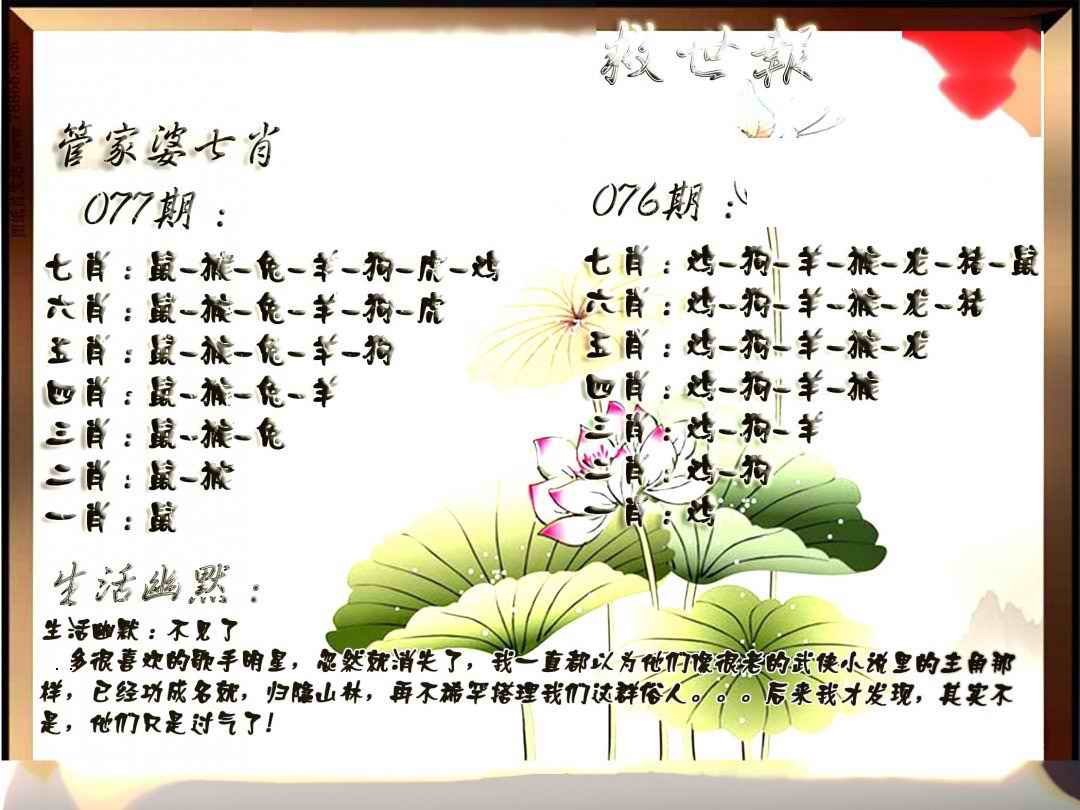 救世報
管家婆七肖
077期：
七肖：鼠-猴-兔-羊-狗-虎-鸡
六肖：鼠-猴-兔-羊-狗-虎
五肖：鼠-猴-兔-羊-狗
四肖：鼠-猴-兔-羊
三肖：鼠-猴-兔
二肖：鼠-猴
一肖：鼠
076期：
七肖：鸡-狗-羊-猴-龙-猪-鼠
六肖：鸡-狗-羊-猴-龙-猪
五肖：鸡-狗-羊-猴-龙
四肖：鸡-狗-羊-猴
三肖：鸡-狗-羊
二肖：鸡-狗
一肖：鸡
生活幽默：
生活幽默：不见了
．多很喜欢的歌手明星，忽然就消失了，我一直都以为他们像很老的武侠小说里的主角那
样，已经功成名就，归隐山林，再不稀罕搭理我们这群俗人。。。后来我才发现，其实不
是，他们只是过气了！